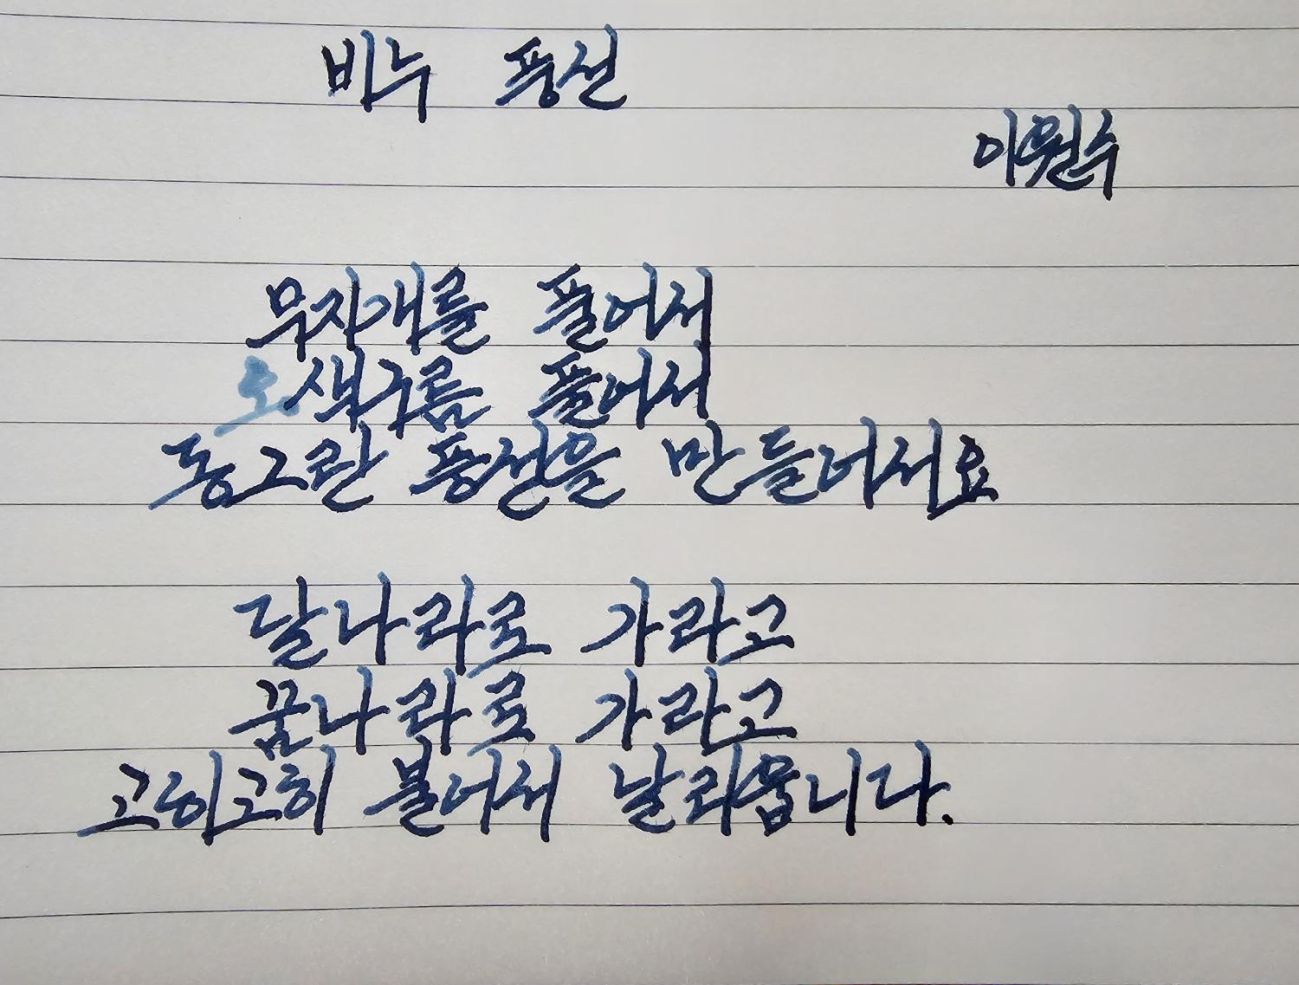 비누 풍선
이원수
무지개를 풀어서
오색구름 풀어서
동그란 풍선을 만들어서요
달나라로 가라고
꿈나라로 가라고
고히고히 불어서 날리웁니다.